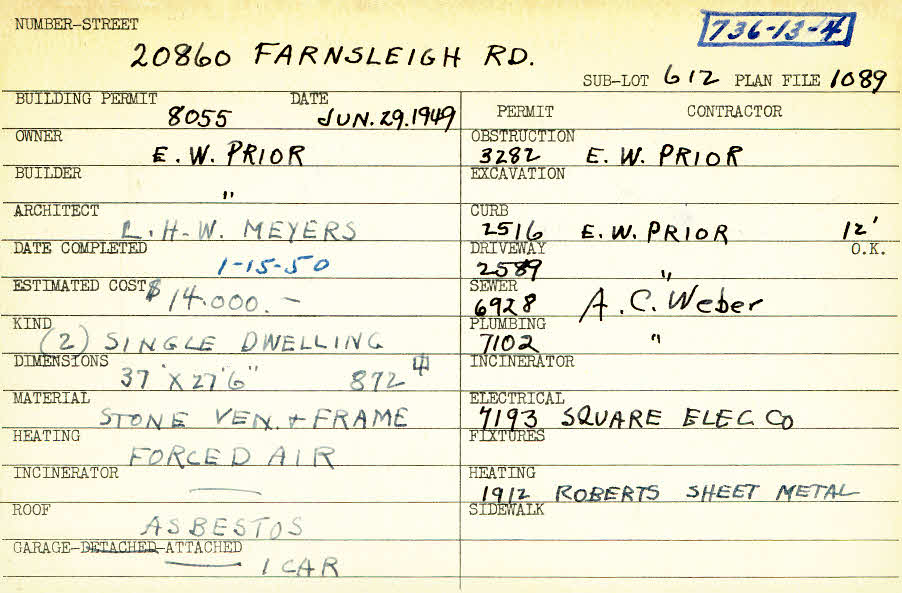 NUMBER-STREET
736-13-4
20860 FARNSLEIGH RD.
SUB-LOT 612 PLAN FILE 1089
BUILDING PERMIT DATE
8055 JUN. 29. 1949
OWNER
E. W. PRIOR
BUILDER
"
ARCHITECT
L. H. W. MEYERS
DATE COMPLETED
1-15-50
ESTIMATED COST $ 14.000. -
KIND
(2) SINGLE DWELLING
DIMENSIONS
37' X 27'6" 872
MATERIAL
STONE VEN. + FRAME
HEATING
FORCED AIR
INCINERATOR
—
ROOF
ASBESTOS
GARAGE-DETACHED-ATTACHED
1 CAR
PERMIT CONTRACTOR
OBSTRUCTION
3282 E. W. PRIOR
EXCAVATION
CURB
2516 E. W. PRIOR 12'
DRIVEWAY O.K.
2589 "
SEWER
6928 A. C. Weber
PLUMBING
7102 "
INCINERATOR
ELECTRICAL
7193 SQUARE ELEC. CO
FIXTURES
HEATING
1912 ROBERTS SHEET METAL
SIDEWALK